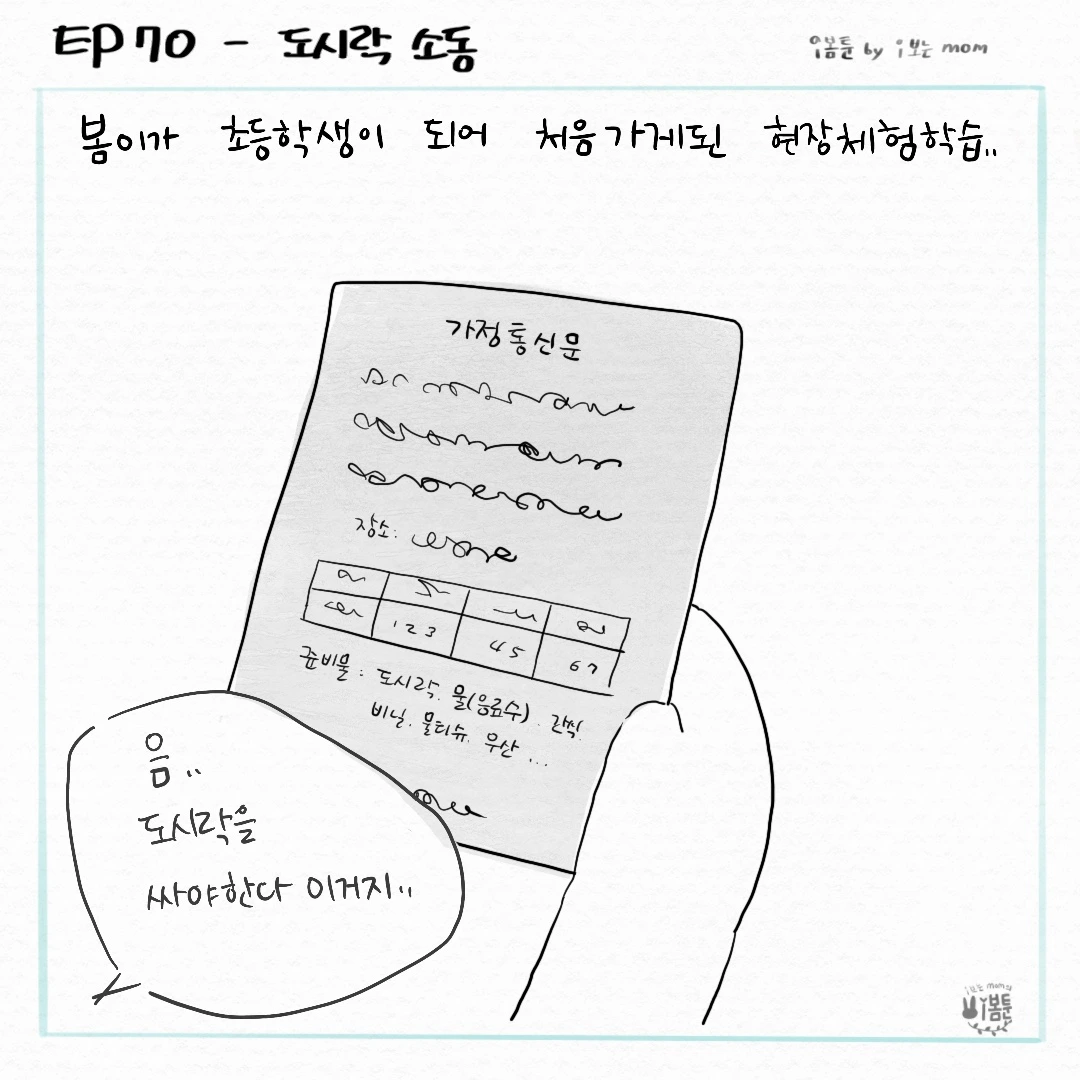 EP 70 - 도시락 소동
i봄툰 by i보는 mom
봄이가 초등학생이 되어 처음가게된 현장체험학습..
가정통신문
장소:
1 2 3 4 5 6 7
준비물 : 도시락, 물(음료수), 간식,
비닐, 물티슈, 우산 ...
음..
도시락을
싸야한다 이거지..
i보는 mom의
i봄툰